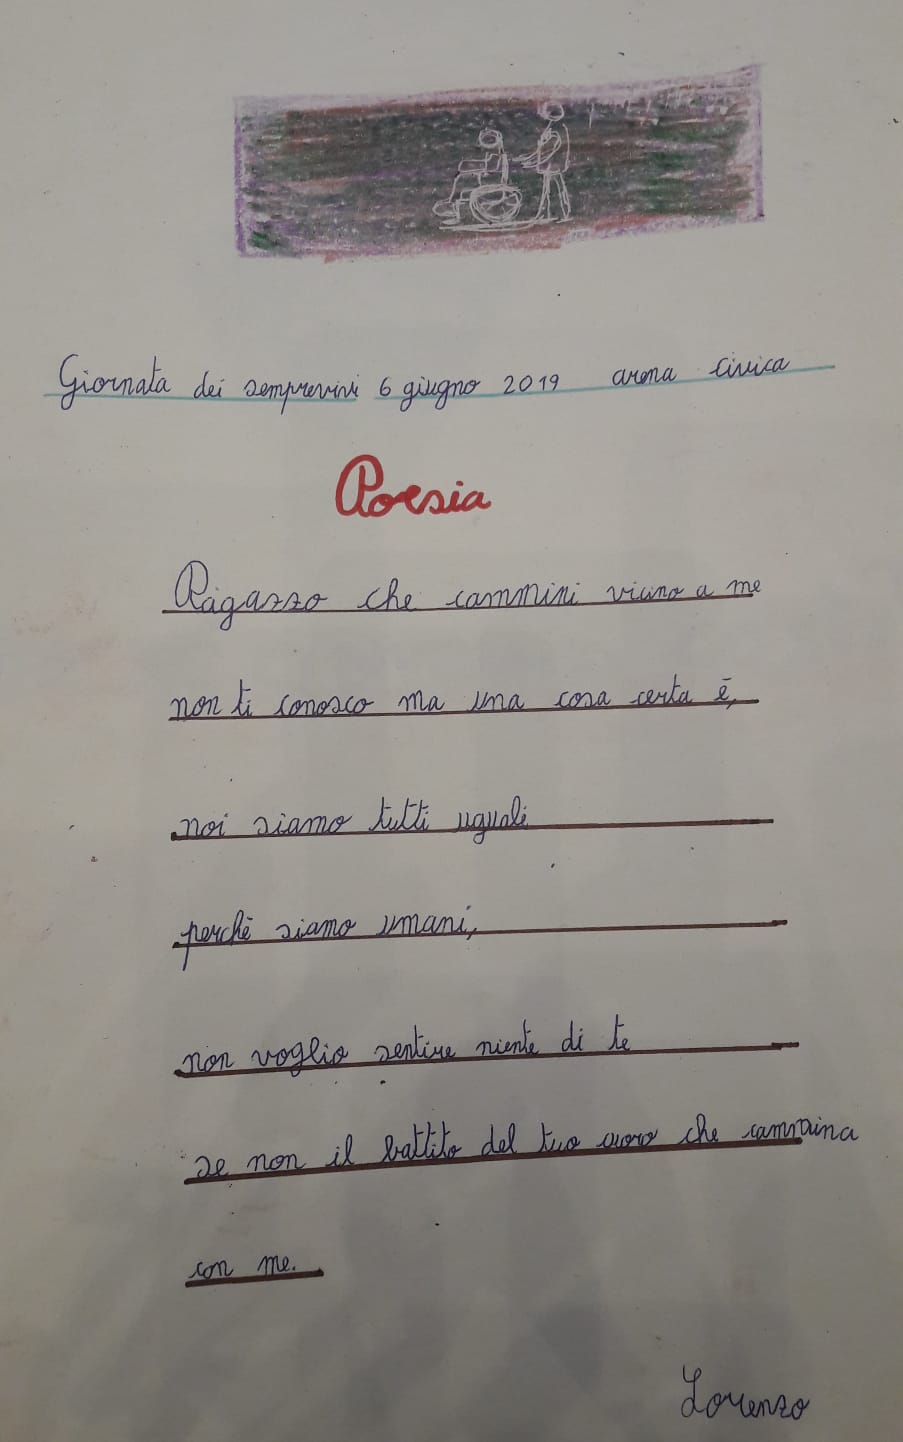 Giornata dei semprevivi 6 giugno 2019 arena civica
Poesia
Ragazzo che cammini vicino a me
non ti conosco ma una cosa certa è,
noi siamo tutti uguali
perchè siamo umani,
non voglio sentire niente di te
se non il battito del tuo cuore che cammina
con me.
Lorenzo